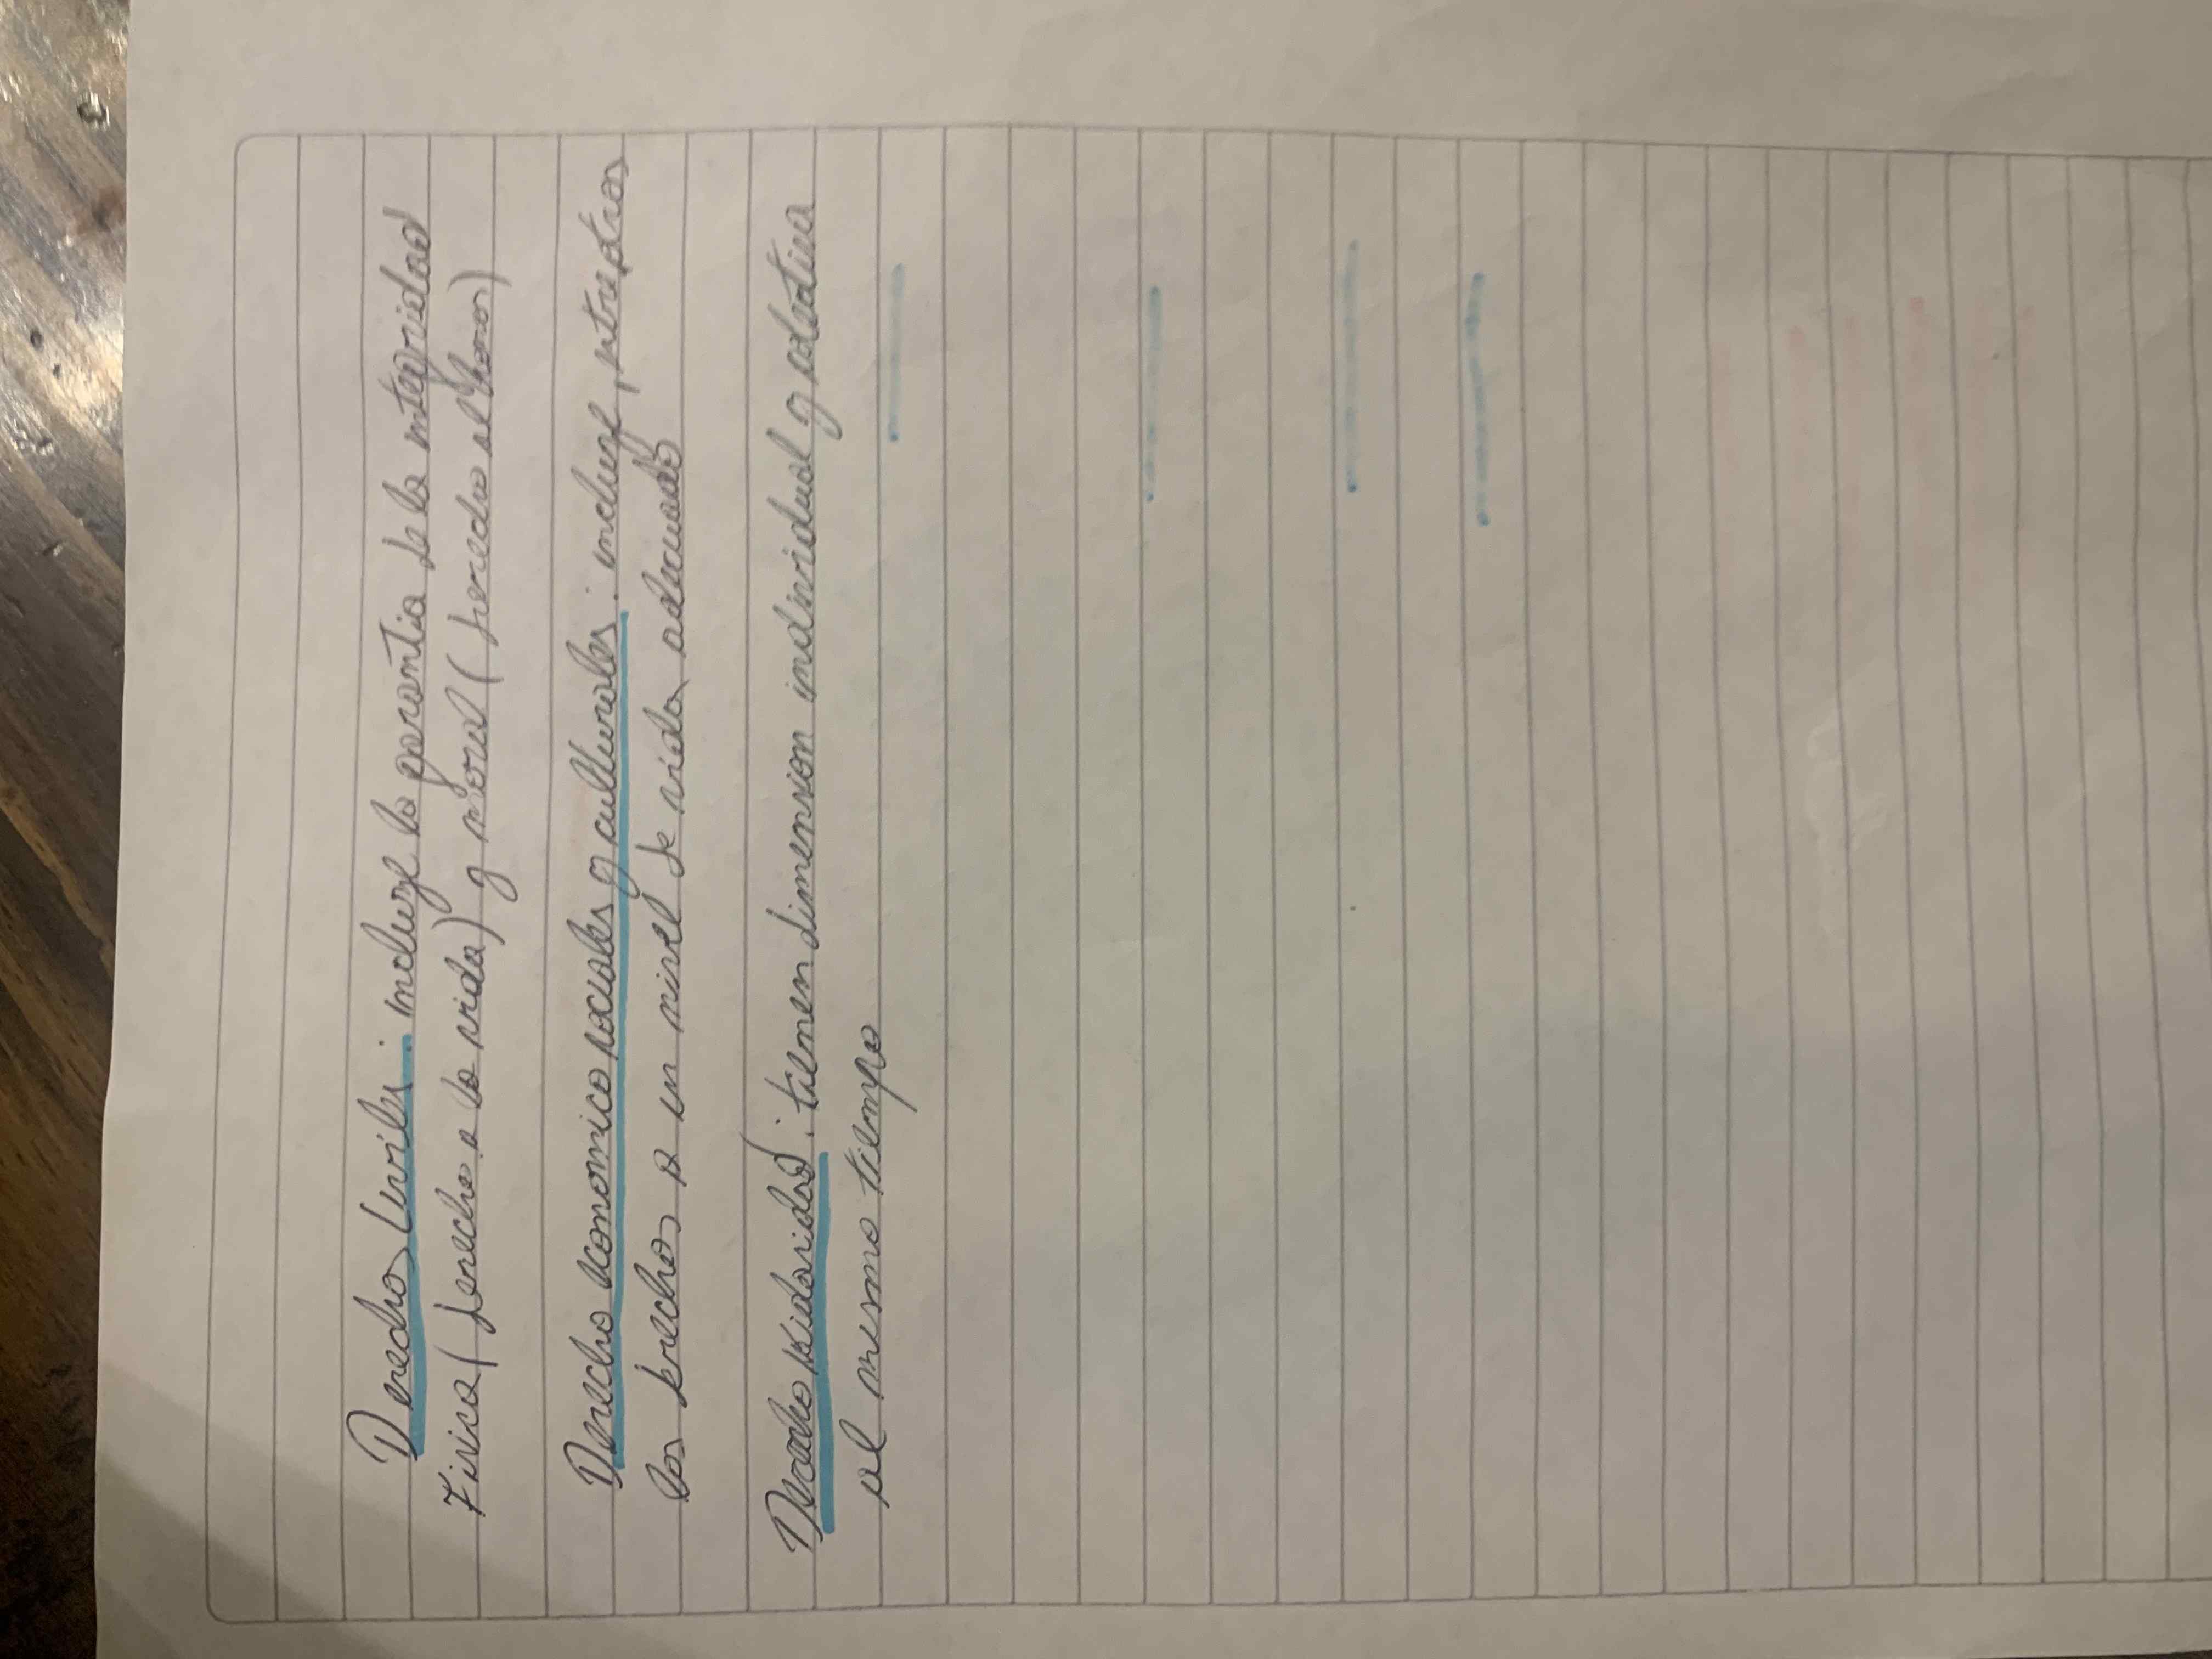 Derechos Civiles: incluye la garantia de la integridad
Fisica (derecho a la vida) y moral (derecho al honor)
Derecho economico sociales y culturales: incluye, entre otros
los derechos a un nivel de vida adecuado
Derecho solidaridad: tienen dimension individual y colectiva
al mismo tiempo